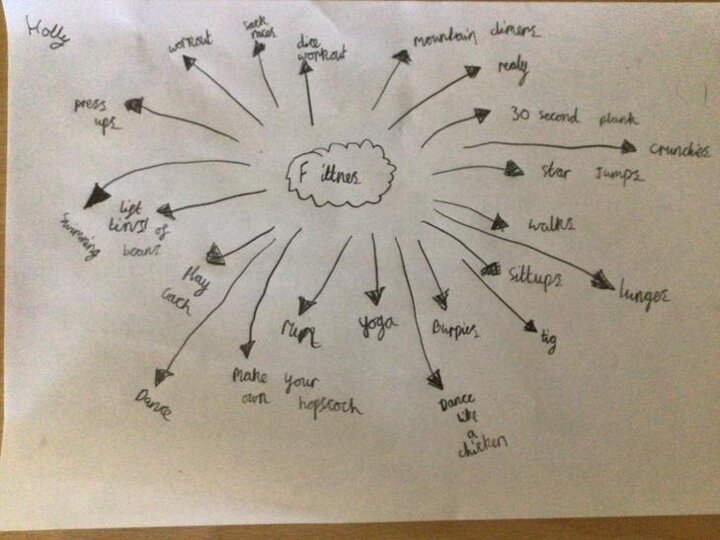 Holly
workout
sack
races
dice
workout
mountain climers
realy
press
ups
30 second plank
crunchies
F ittnes
star jumps
swimming
lift
tins! of
beans
walks
lunges
Play
catch
sittups
tig
Run
yoga
Burpies
Dance
Make your
own hopscoch
Dance
like
a
chicken